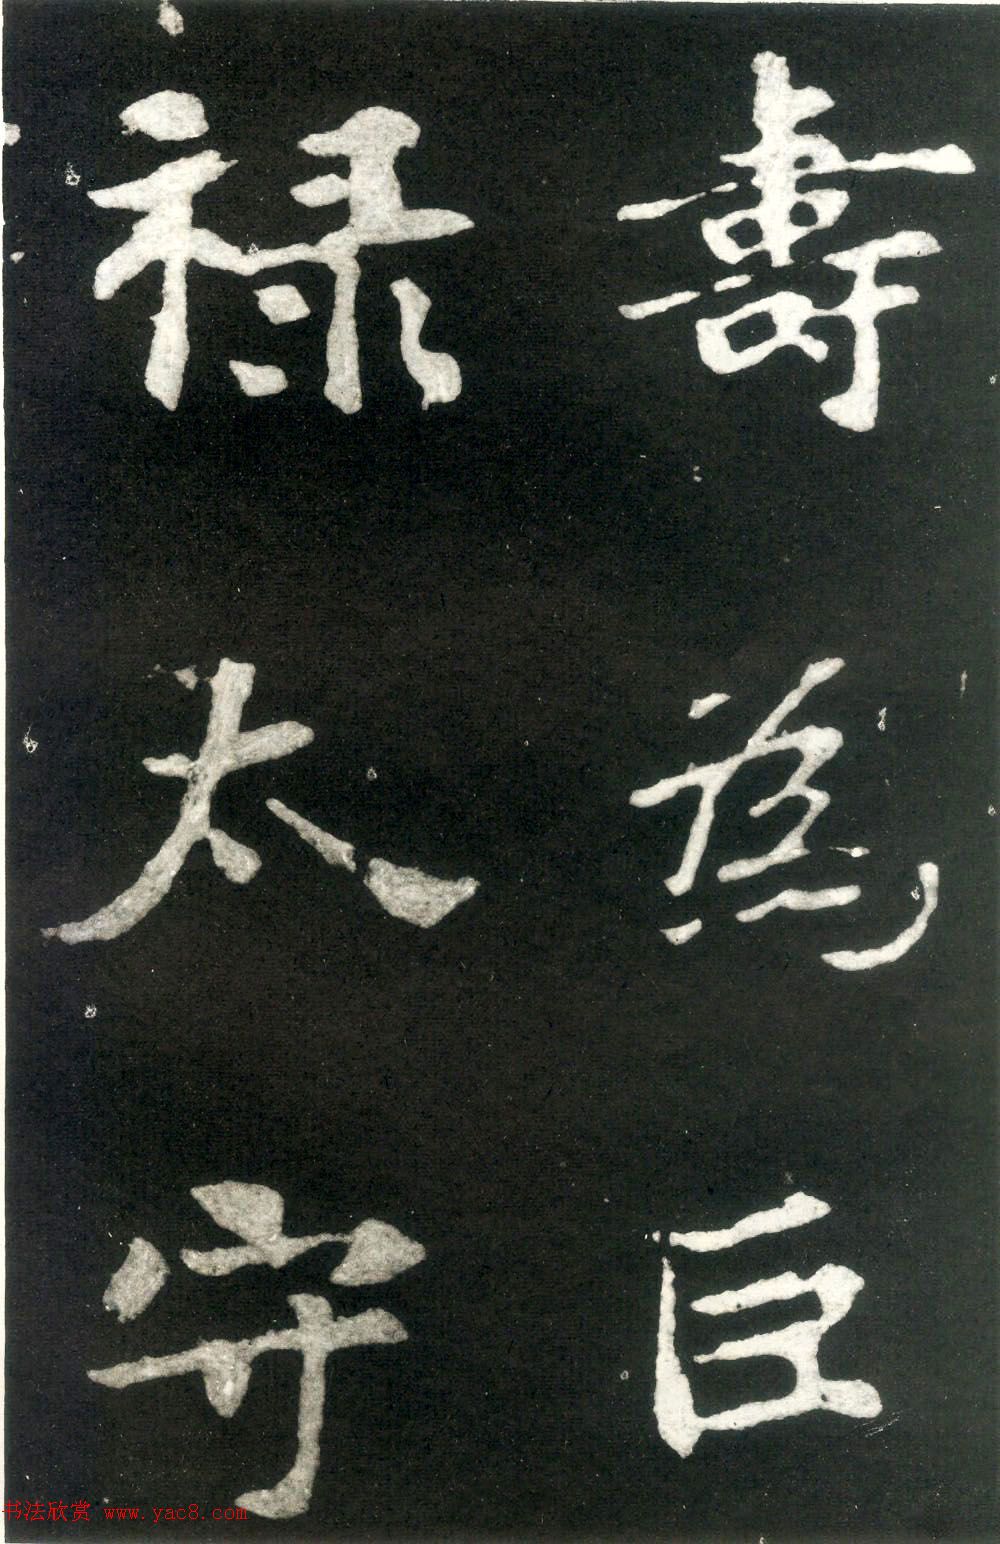 壽為巨
禄太守
书法欣赏 www.yac8.com